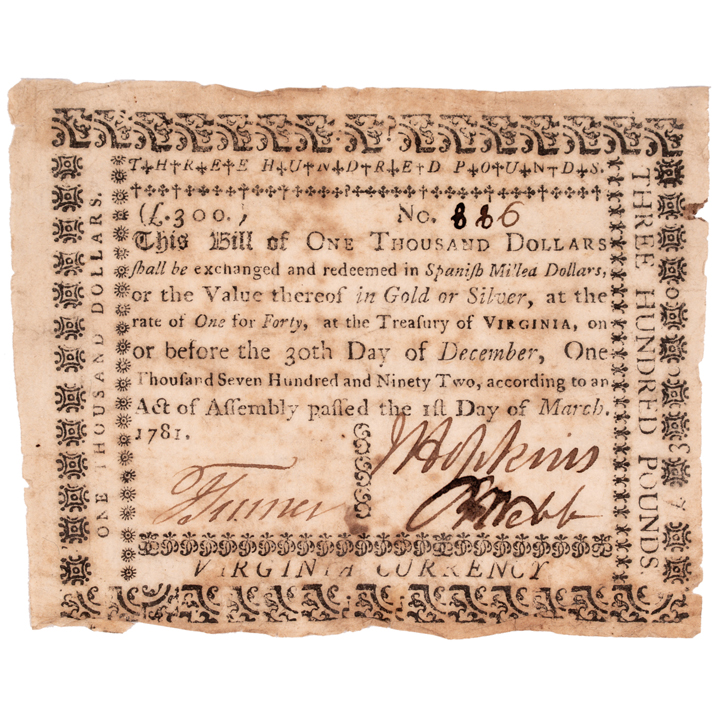 THREE HUNDRED POUNDS.
(£.300.) No. 886
This Bill of ONE THOUSAND DOLLARS
ſhall be exchanged and redeemed in Spaniſh Mi'lea Dollars,
or the Value thereof in Gold or Silver, at the
rate of One for Forty, at the Treaſury of VIRGINIA, on
or before the 30th Day of December, One
Thouſand Seven Hundred and Ninety Two, according to an
Act of Aſſembly paſſed the 1ſt Day of March.
1781.
J Hopkins
J Turner
B Webb
VIRGINIA CURRENCY
ONE THOUSAND DOLLARS.
THREE HUNDRED POUNDS.